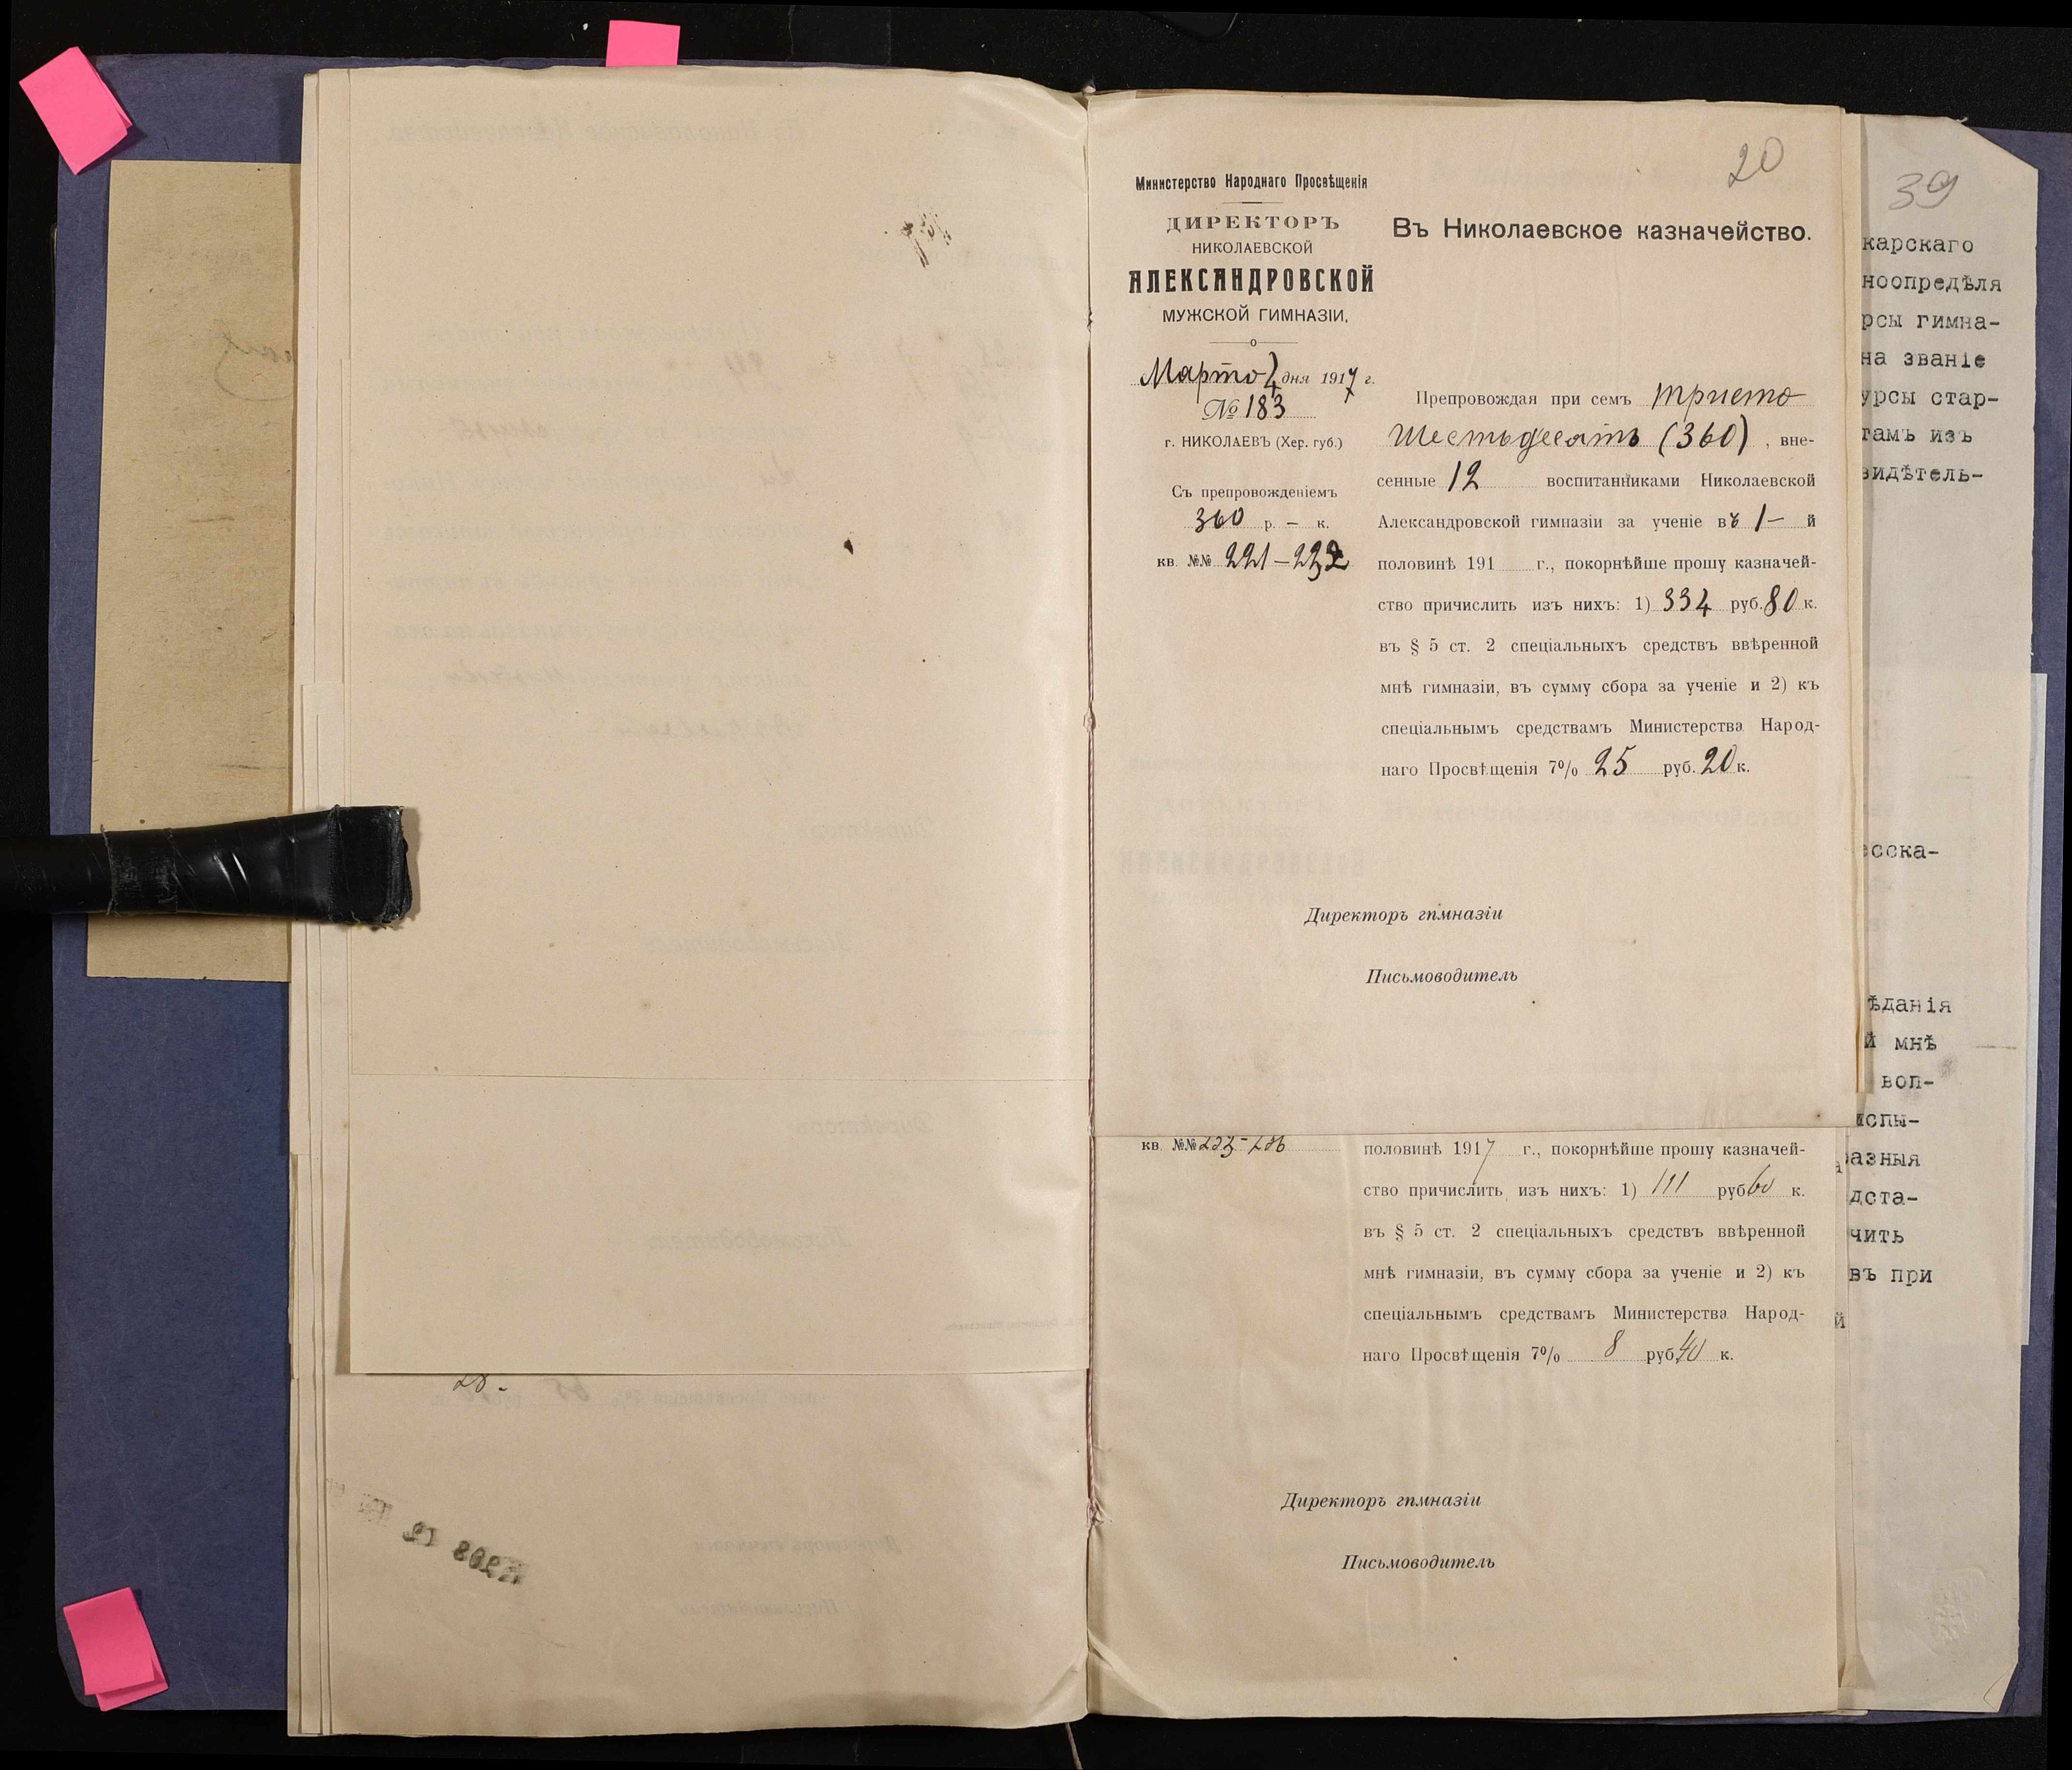 20
Министерство Народнаго Просвѣщенія
ДИРЕКТОРЪ
НИКОЛАЕВСКОЙ
АЛЕКСАНДРОВСКОЙ
МУЖСКОЙ ГИМНАЗІИ.
Марта 4 дня 1917 г.
№ 183
г. НИКОЛАЕВЪ (Хер. губ.)
Съ препровожденіемъ
360 р. — к.
кв. №№ 221 – 232
Въ Николаевское казначейство.
Препровождая при семъ триста
шестьдесятъ (360), вне-
сенные 12 воспитанниками Николаевской
Александровской гимназіи за ученіе въ 1- й
половинѣ 191 г., покорнѣйше прошу казначей-
ство причислить изъ нихъ: 1) 334 руб. 80 к.
въ § 5 ст. 2 спеціальныхъ средствъ ввѣренной
мнѣ гимназіи, въ сумму сбора за ученіе и 2) къ
спеціальнымъ средствамъ Министерства Народ-
наго Просвѣщенія 7% 25 руб. 20 к.
Директоръ гимназіи
Письмоводитель
кв. №№ 233-236
половинѣ 1917 г., покорнѣйше прошу казначей-
ство причислить изъ нихъ: 1) 111 руб 60 к.
въ § 5 ст. 2 спеціальныхъ средствъ ввѣренной
мнѣ гимназіи, въ сумму сбора за ученіе и 2) къ
спеціальнымъ средствамъ Министерства Народ-
наго Просвѣщенія 7% 8 руб 40 к.
Директоръ гимназіи
Письмоводитель
39
карскаго
ноопредѣля
рсы гимна-
на званіе
урсы стар-
тамъ изъ
видѣтель-
сска-
ѣданія
й мнѣ
воп-
испы-
азныя
дста-
чить
въ при
й